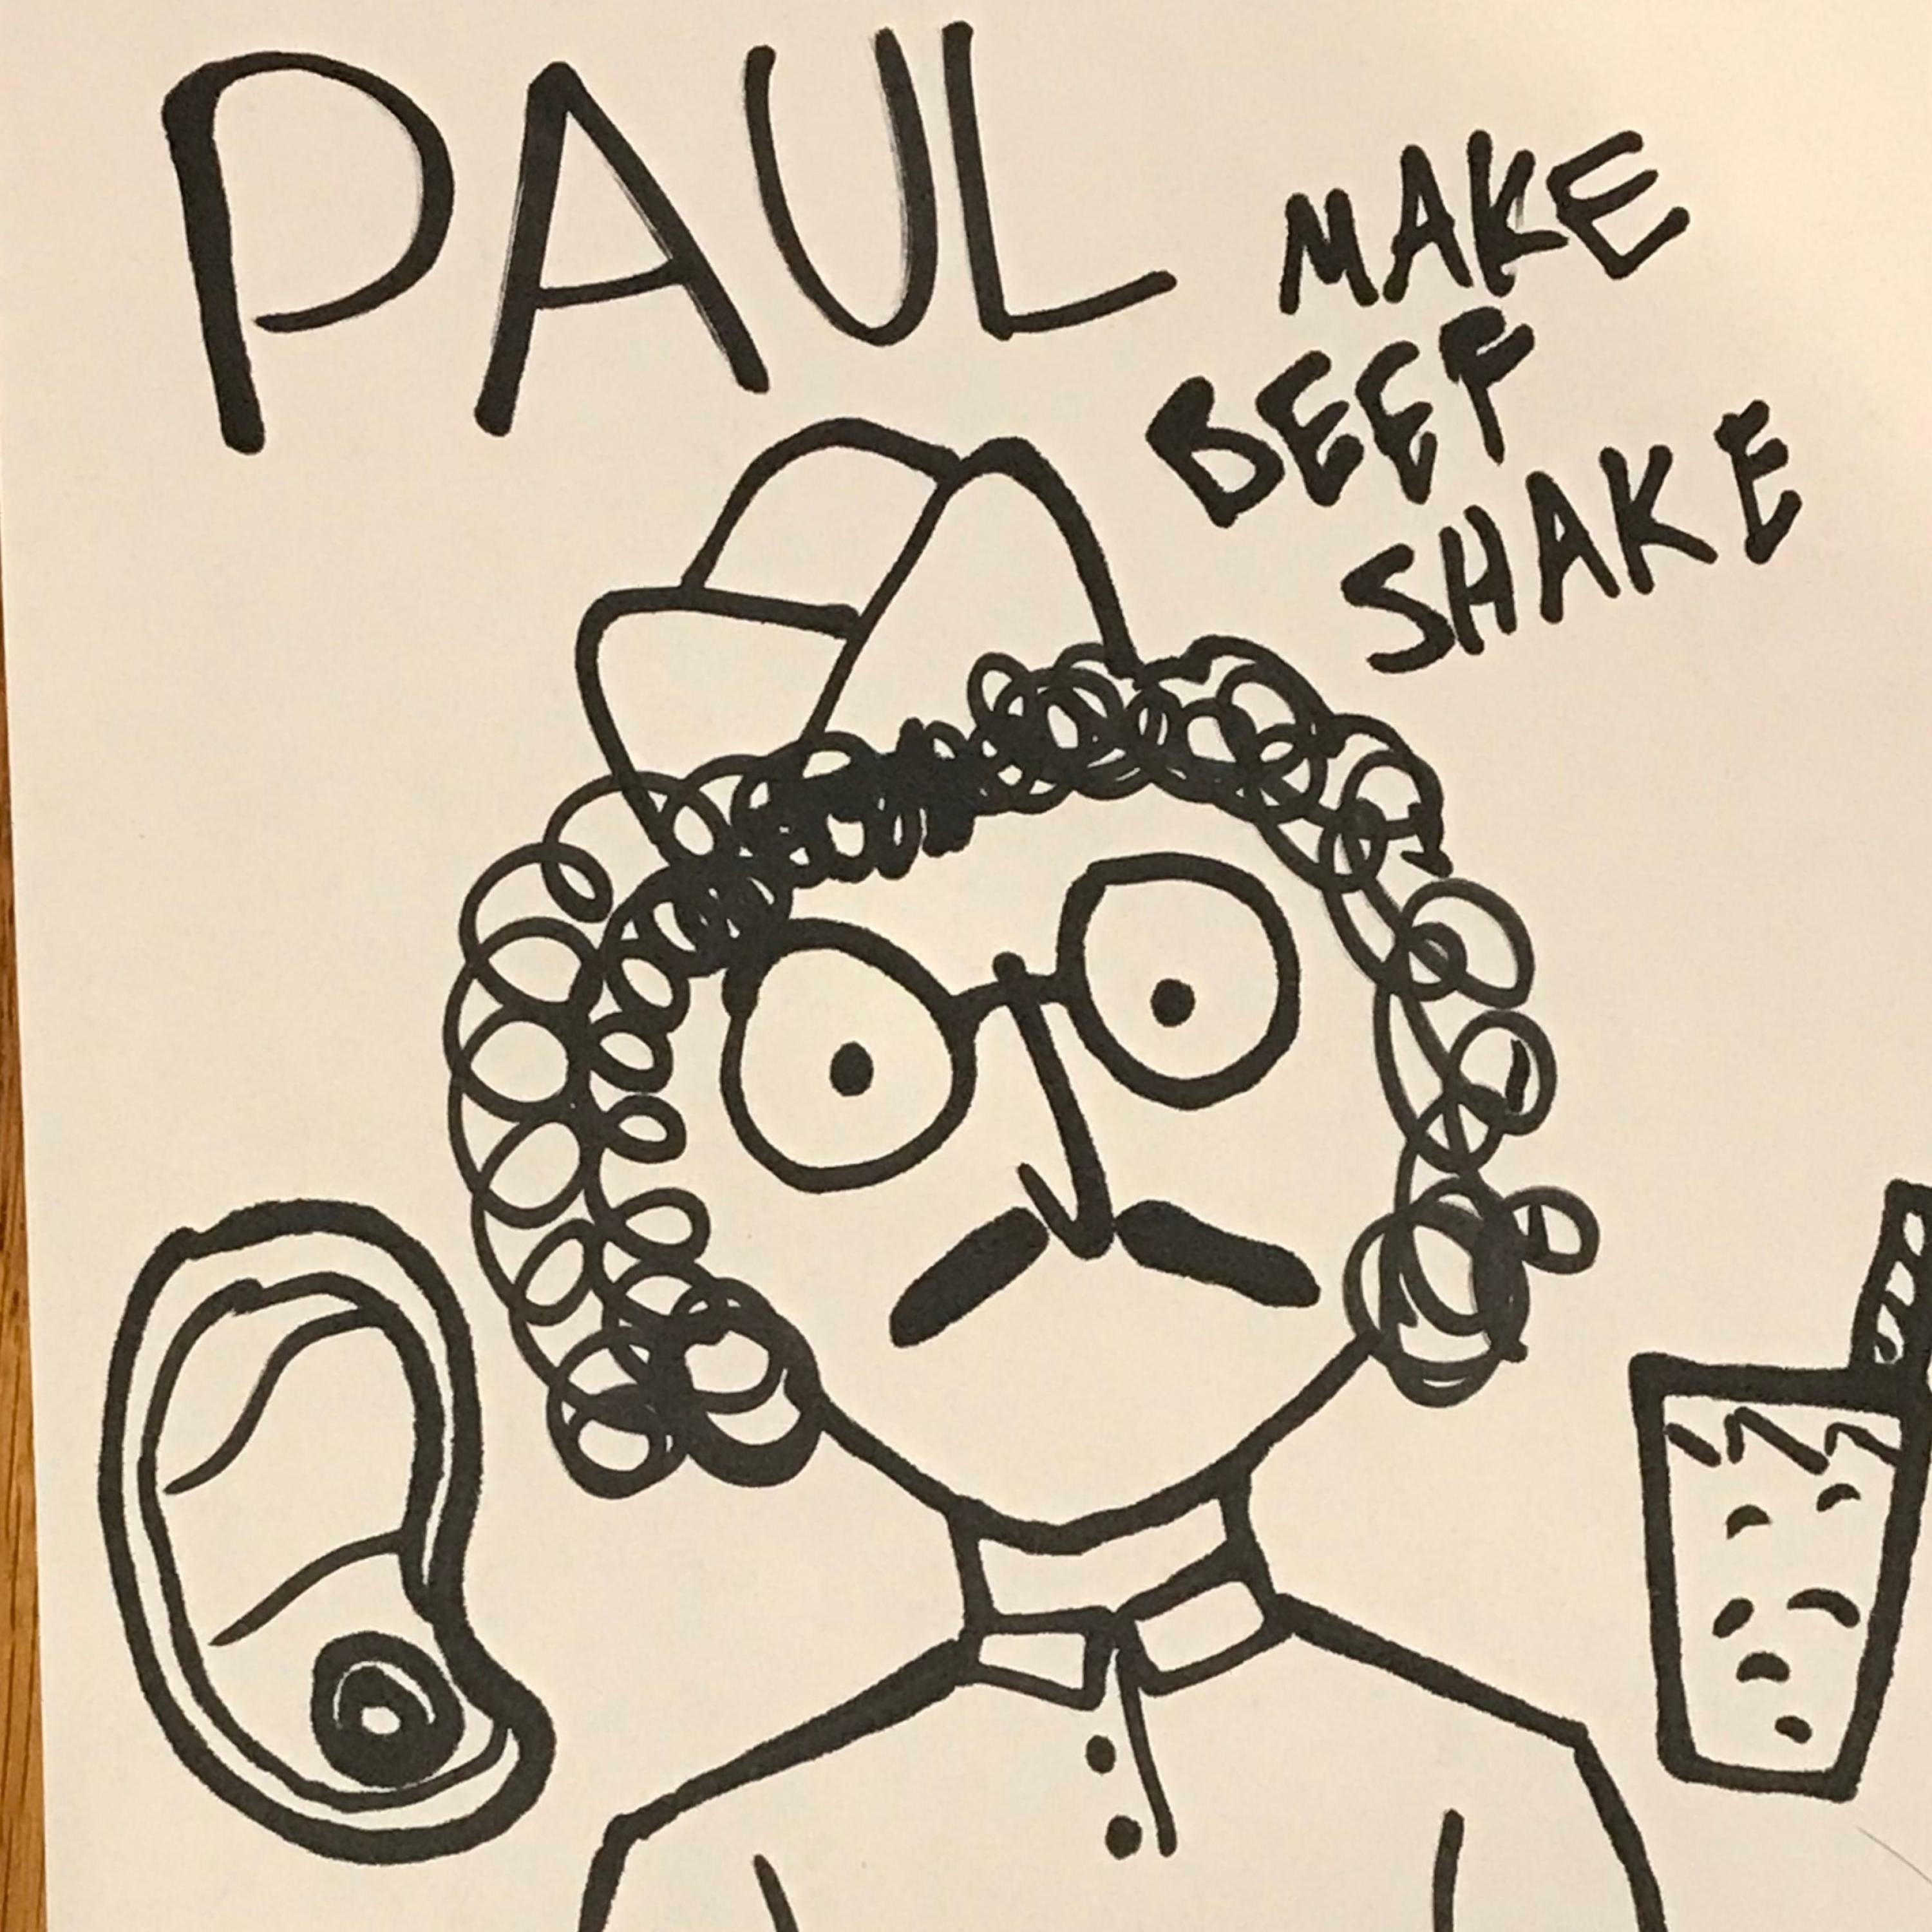 PAUL
MAKE
BEEF
SHAKE